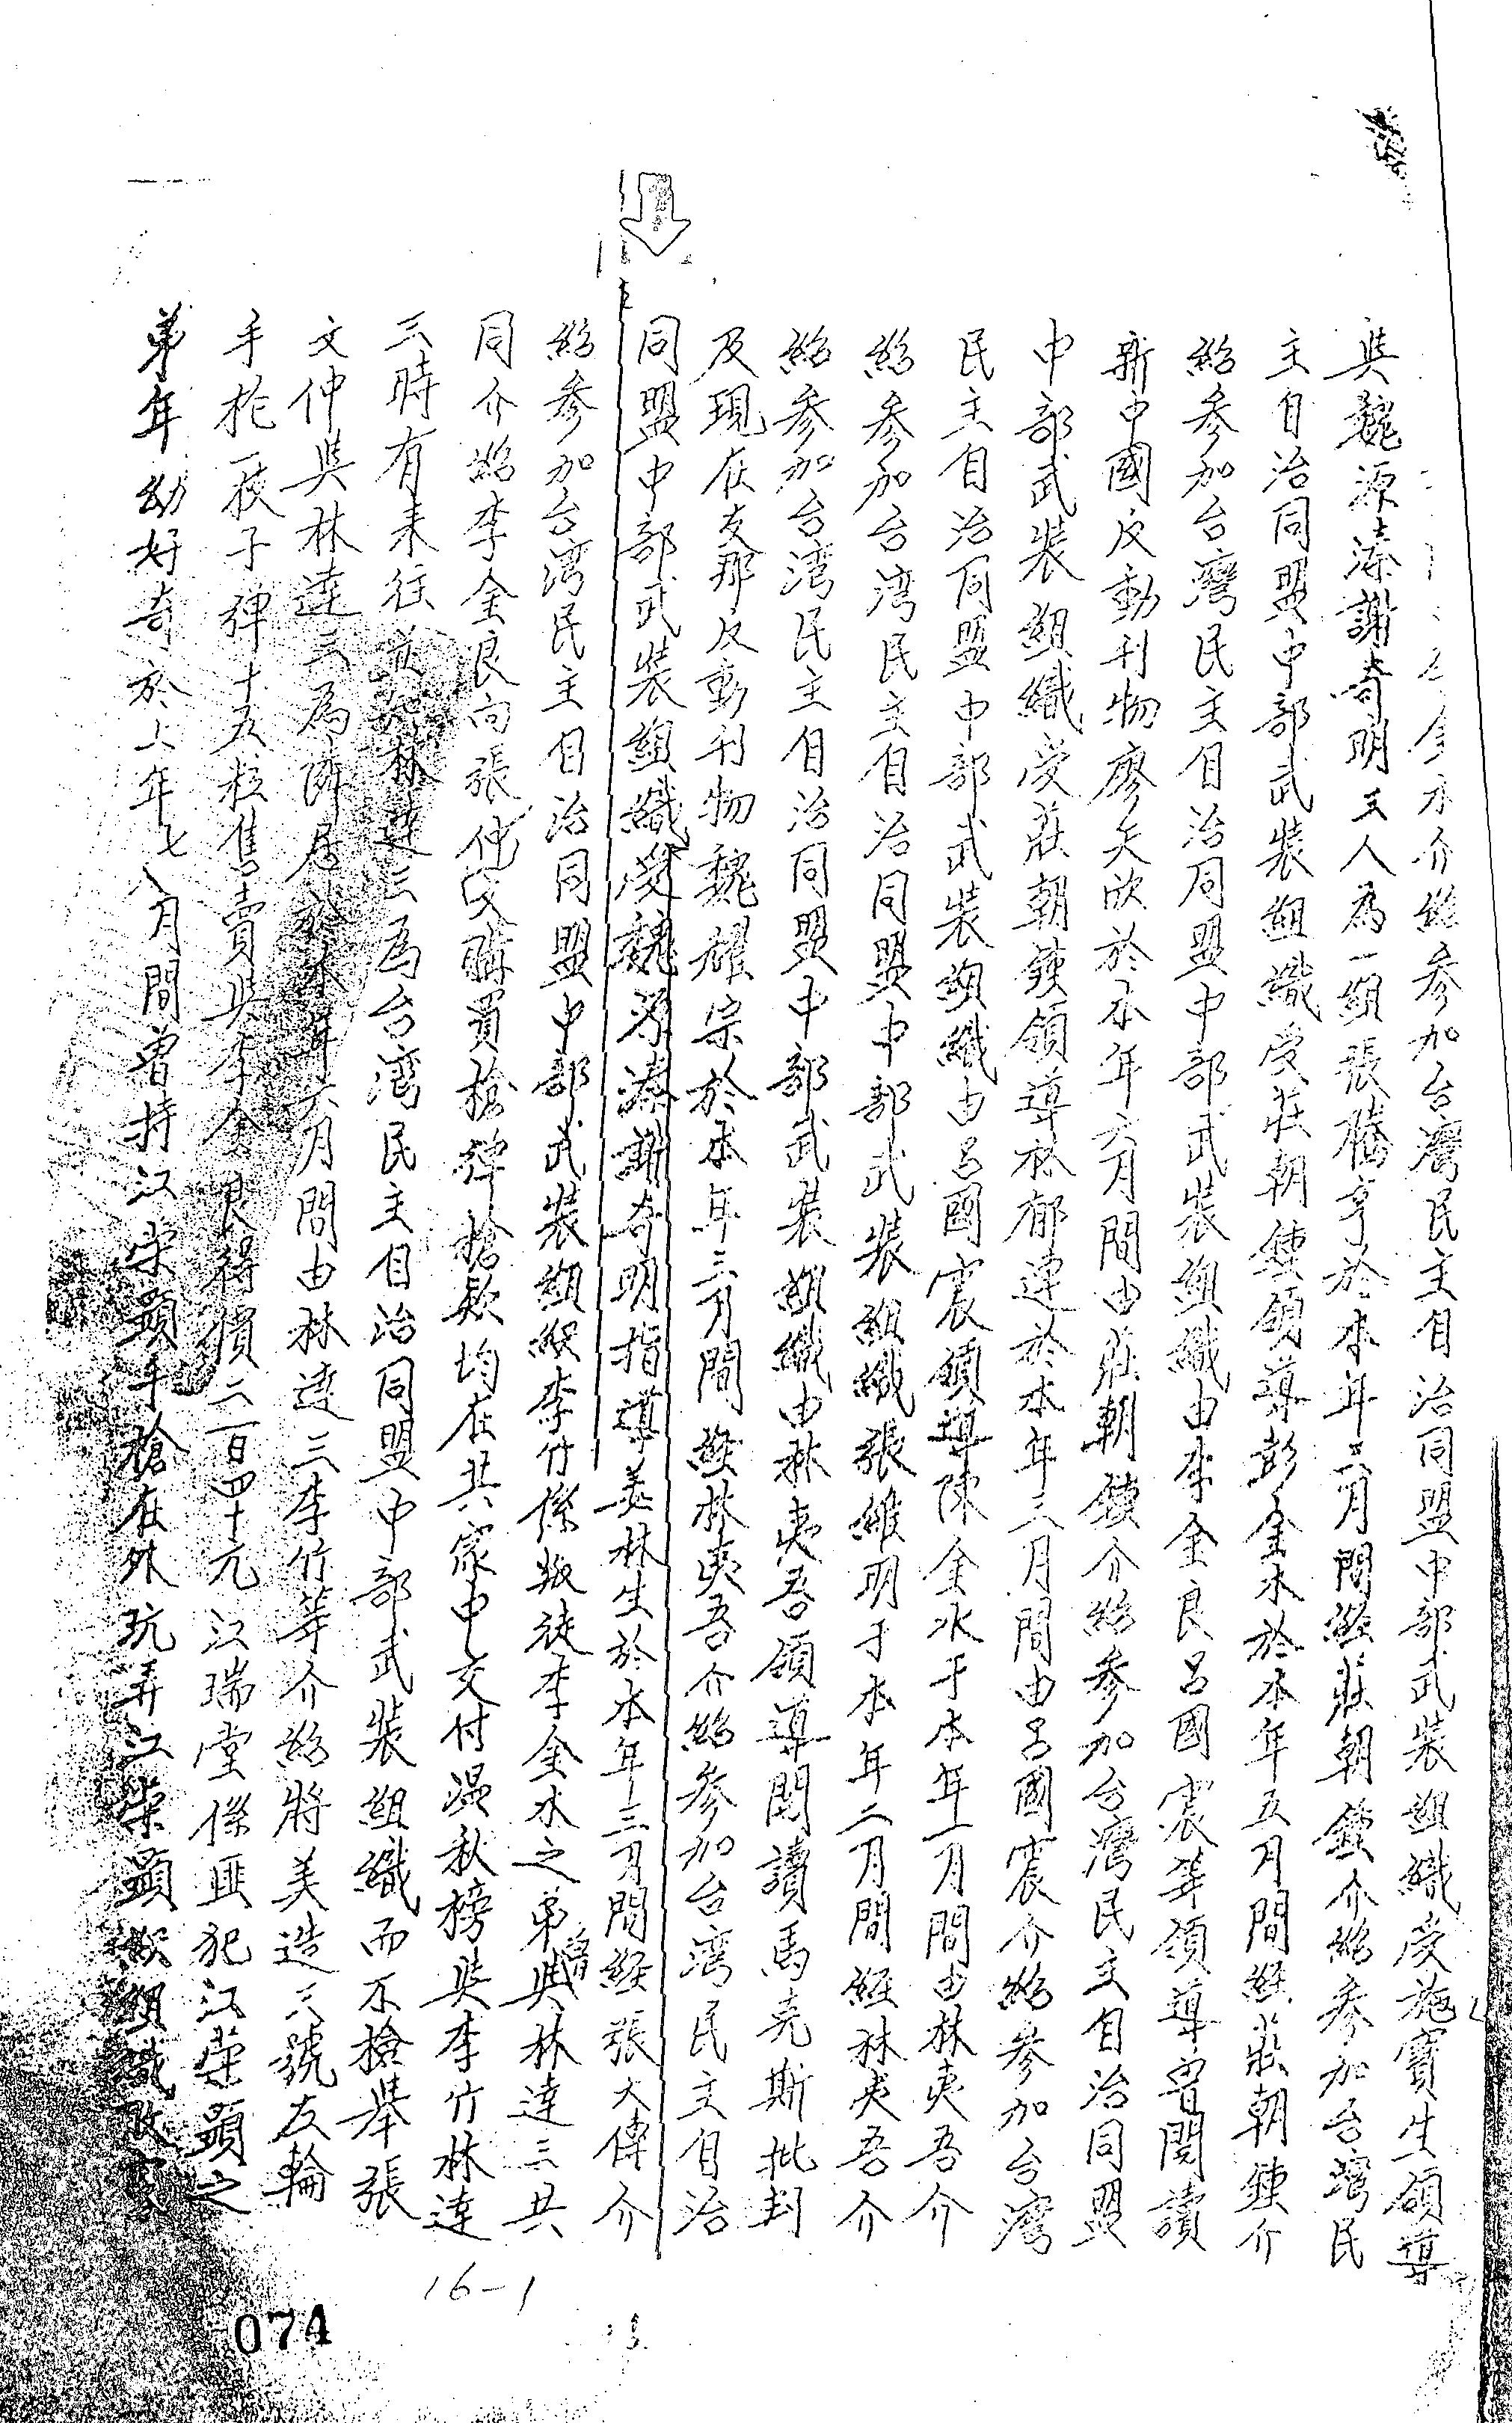 金水介紹參加台灣民主自治同盟中部武裝組織受施寶生領導
與魏源溱謝奇明三人為一組張騰亨於本年三月間經莊朝鍾介紹參加台灣民
主自治同盟中部武裝組織受莊朝鍾領導彭金水於本年五月間經莊朝鍾介
紹參加台灣民主自治同盟中部武裝組織由李金良呂國震等領導曾閱讀
新中國反動刊物廖矢欣於本年六月間由莊朝鍾介紹參加台灣民主自治同盟
中部武裝組織受莊朝鍾領導林郁連於本年三月間由呂國震介紹參加台灣
民主自治同盟中部武裝組織由呂國震領導陳金水于本年一月間由林夷吾介
紹參加台灣民主自治同盟中部武裝組織張維明于本年二月間經林夷吾介
紹參加台湾民主自治同盟中部武裝組織由林夷吾領導閱讀馬克斯批判
及現在支那反動刊物魏耀宗於本年三月間經林夷吾介紹參加台湾民主自治
同盟中部武裝組織受魏源溱謝奇明指導姜林生於本年三月間經張大傳介
紹參加台湾民主自治同盟中部武裝組織李竹係叛徒李金水之弟曾與林達三共
同介紹李金良向張仲文購買槍彈槍款均在其家中交付温秋榜與李竹林達
三時有来往並知林達三為台湾民主自治同盟中部武裝組織而不檢舉張
文仲與林達三為隣居於本年六月間由林達三李竹等介紹將美造三號左輪
手槍一枝子彈十五粒售賣與李金良得價二百四十元江瑞堂係匪犯江荣顕之
弟年幼好奇於上年七八月間曾持江荣顕手槍在外玩弄江荣顕
074
16-1